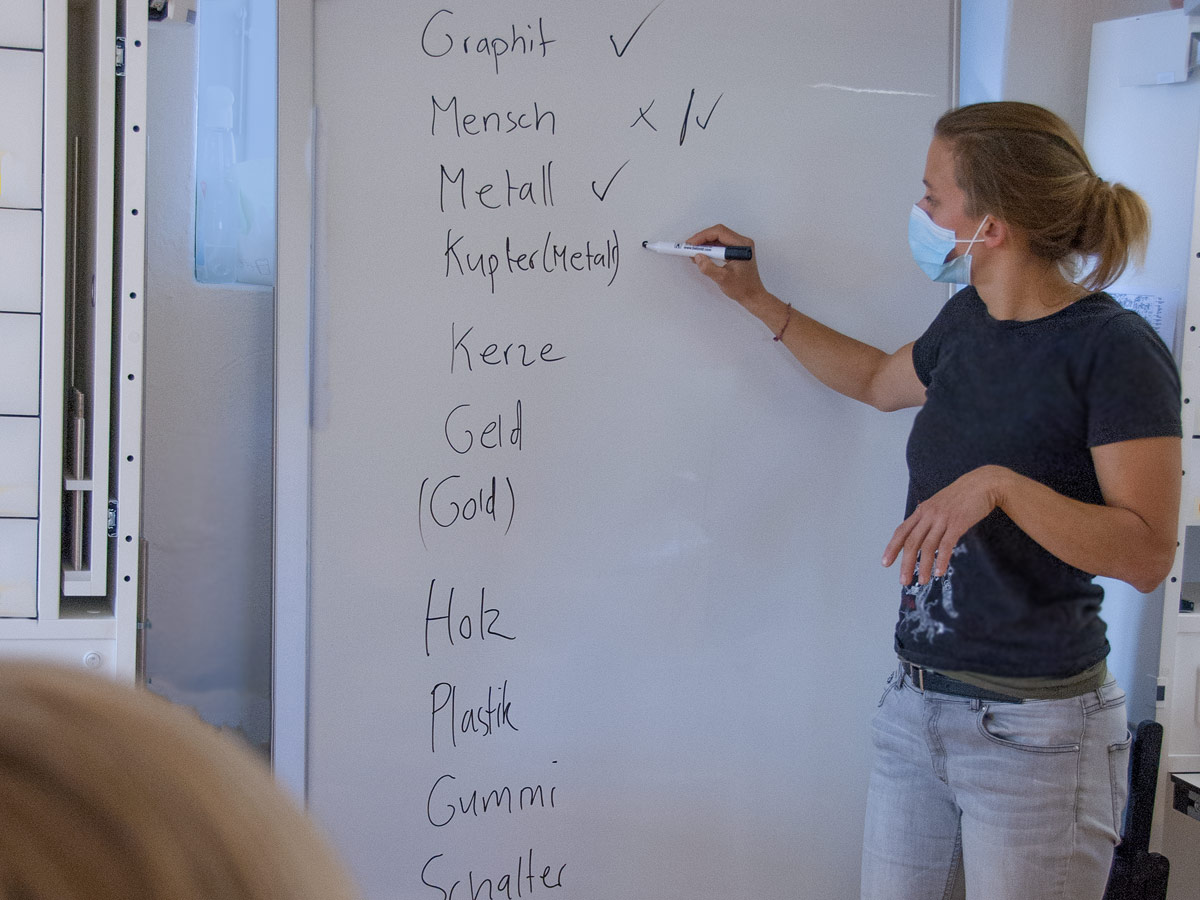 Graphit ✓
Mensch x /✓
Metall ✓
Kupfer (Metall)
Kerze
Geld
(Gold)
Holz
Plastik
Gummi
Schalter